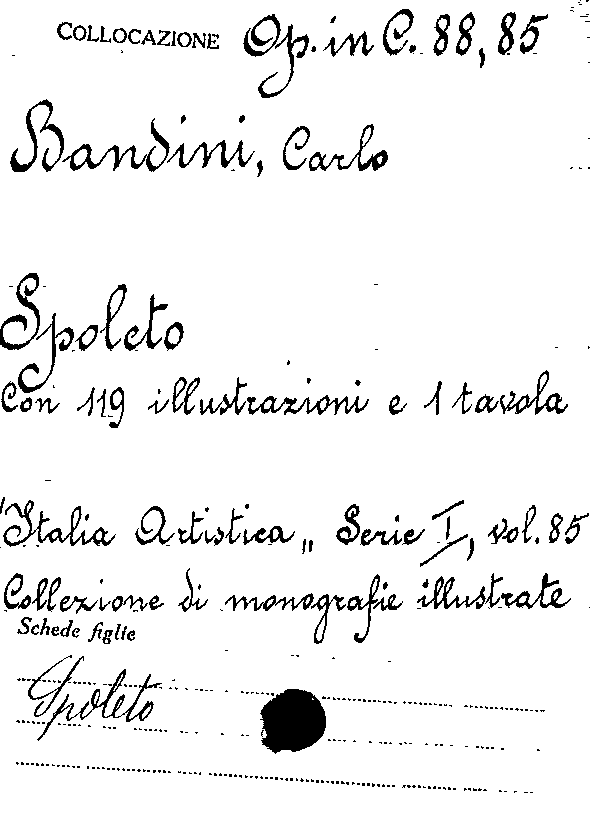 COLLOCAZIONE Op. in C. 88, 85
Bandini, Carlo
Spoleto
Con 119 illustrazioni e 1 tavola
"Italia Artistica„ Serie I, vol. 85
Collezione di monografie illustrate
Schede figlie
Spoleto